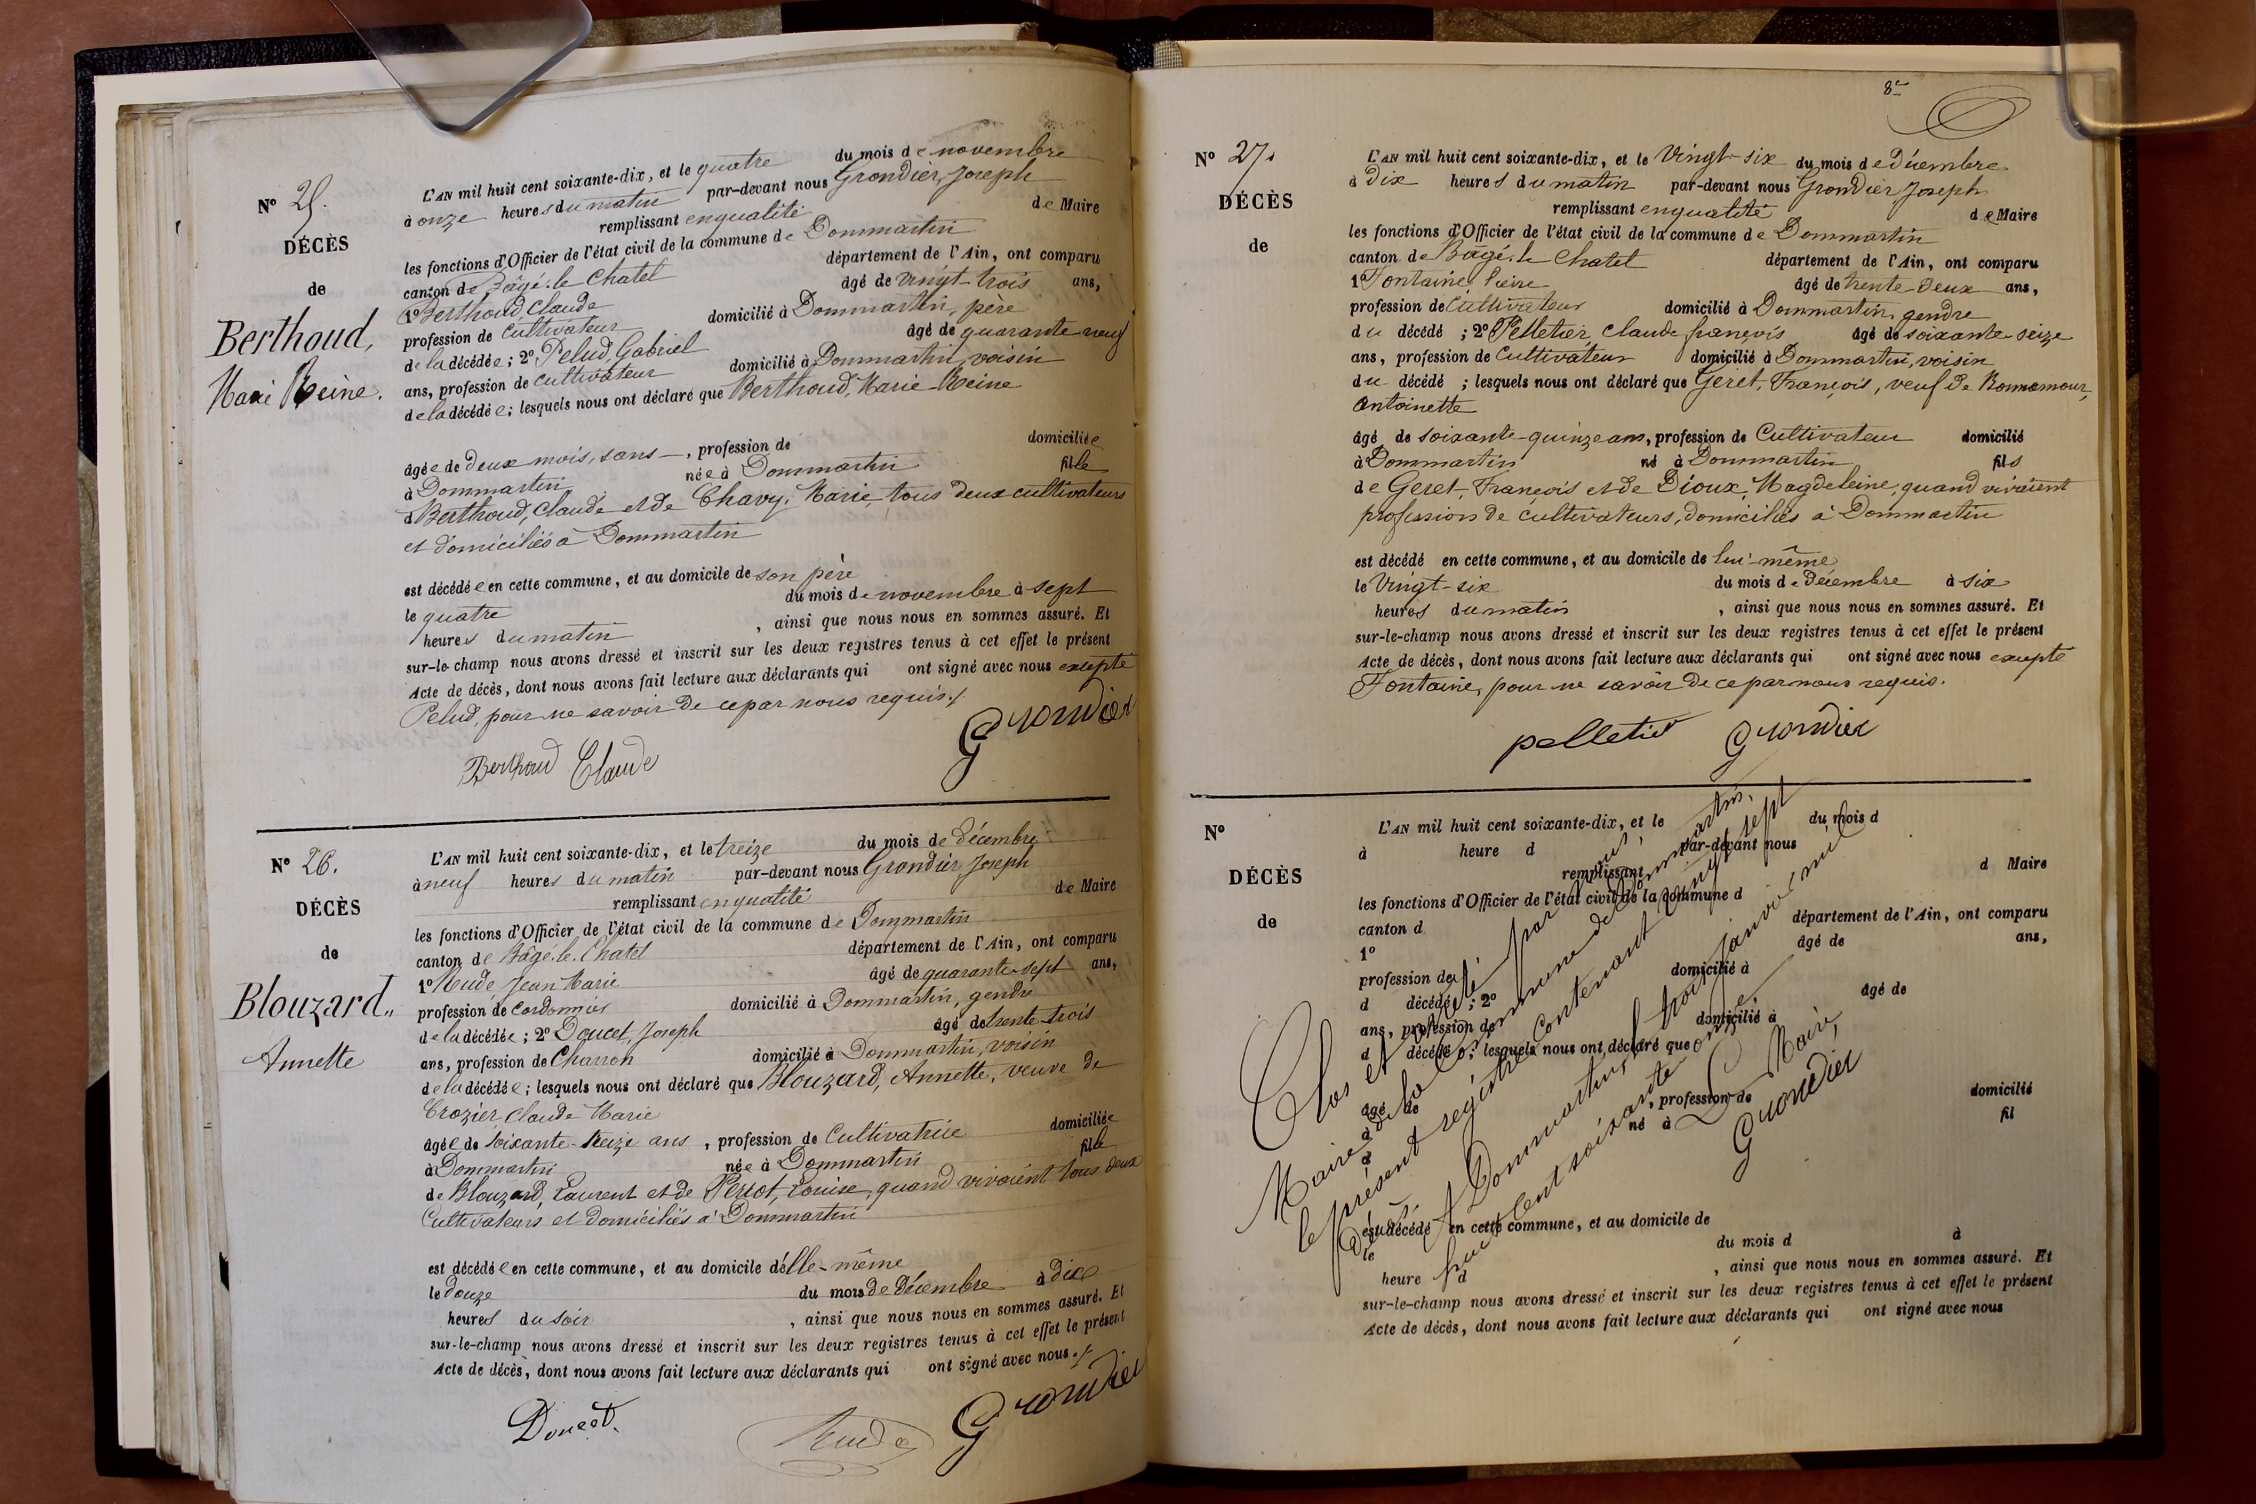 N° 25.
DÉCÈS
de
Berthoud,
Marie Reine.
L'AN mil huit cent soixante-dix, et le quatre du mois de novembre
à onze heures du matin par-devant nous Grondier, Joseph
remplissant en qualité de Maire
les fonctions d'Officier de l'état civil de la commune de Dommartin
canton de Bâgé-le-Chatel département de l'Ain, ont comparu
1° Berthoud, Claude âgé de vingt-trois ans,
profession de Cultivateur domicilié à Dommartin, père
de la décédée ; 2° Pelud, Gabriel âgé de quarante-neuf
ans, profession de Cultivateur domicilié à Dommartin, voisin
de la décédée ; lesquels nous ont déclaré que Berthoud, Marie-Reine
âgée de deux mois, sans —, profession de domiciliée
à Dommartin née à Dommartin fille
d Berthoud, Claude et de Chavy, Marie, tous deux cultivateurs
et domiciliés à Dommartin
est décédée en cette commune, et au domicile de son père
le quatre du mois de novembre à sept
heures du matin , ainsi que nous nous en sommes assuré. Et
sur-le-champ nous avons dressé et inscrit sur les deux registres tenus à cet effet le présent
Acte de décès, dont nous avons fait lecture aux déclarants qui ont signé avec nous excepté
Pelud, pour ne savoir de ce par nous requis.
Berthoud Claude Grondier
N° 26.
DÉCÈS
de
Blouzard,,
Annette
L'AN mil huit cent soixante-dix, et le treize du mois de décembre
à neuf heures du matin par-devant nous Grondier, Joseph
remplissant en qualité de Maire
les fonctions d'Officier de l'état civil de la commune de Dommartin
canton de Bâgé-le-Chatel département de l'Ain, ont comparu
1° Jean Marie âgé de quarante-sept ans,
profession de cordonnier domicilié à Dommartin, gendre
de la décédée ; 2° Doucet, Joseph âgé de trente-trois
ans, profession de Charron domicilié à Dommartin, voisin
de la décédée ; lesquels nous ont déclaré que Blouzard, Annette, veuve de
Crozier, Claude Marie
âgée de soixante-treize ans, profession de Cultivatrice domiciliée
à Dommartin née à Dommartin fille
de Blouzard, Laurent et de Louise, quand vivaient tous deux
Cultivateurs et domiciliés à Dommartin
est décédée en cette commune, et au domicile d'elle-même
le douze du mois de Décembre à dix
heures du soir , ainsi que nous nous en sommes assuré. Et
sur-le-champ nous avons dressé et inscrit sur les deux registres tenus à cet effet le présent
Acte de décès, dont nous avons fait lecture aux déclarants qui ont signé avec nous
Doucet. Grondier
8e
N° 27.
DÉCÈS
de
L'AN mil huit cent soixante-dix, et le Vingt-six du mois de Décembre
à Dix heures du matin par-devant nous Grondier Joseph
remplissant en qualité de Maire
les fonctions d'Officier de l'état civil de la commune de Dommartin
canton de Bâgé-le-Chatel département de l'Ain, ont comparu
1° Fontaine, Pierre âgé de trente-deux ans,
profession de Cultivateur domicilié à Dommartin, gendre
du décédé ; 2° Pelletier, Claude françois âgé de soixante-seize
ans, profession de Cultivateur domicilié à Dommartin, voisin
du décédé ; lesquels nous ont déclaré que Geret, François, veuf de Bonnamour,
Antoinette
âgé de soixante-quinze ans, profession de Cultivateur domicilié
à Dommartin né à Dommartin fils
de Geret, François et de Dioux, Magdeleine, quand vivaient
profession de cultivateurs, domiciliés à Dommartin
est décédé en cette commune, et au domicile de lui-même
le Vingt-six du mois de Décembre à six
heures du matin , ainsi que nous nous en sommes assuré. Et
sur-le-champ nous avons dressé et inscrit sur les deux registres tenus à cet effet le présent
Acte de décès, dont nous avons fait lecture aux déclarants qui ont signé avec nous excepté
Fontaine, pour ne savoir de ce par nous requis.
pelletier Grondier
N°
DÉCÈS
de
L'AN mil huit cent soixante-dix, et le du mois d
à heure d par-devant nous
remplissant d Maire
les fonctions d'Officier de l'état civil de la commune d
canton d département de l'Ain, ont comparu
1° âgé de ans,
profession de domicilié à
d décédé ; 2° âgé de
ans, profession de domicilié à
d décédé ; lesquels nous ont déclaré que
âgé de , profession de domicilié
à né à fil
d
est décédé en cette commune, et au domicile de
le du mois d à
heure d , ainsi que nous nous en sommes assuré. Et
sur-le-champ nous avons dressé et inscrit sur les deux registres tenus à cet effet le présent
Acte de décès, dont nous avons fait lecture aux déclarants qui ont signé avec nous
Clos et arrêté par nous,
Maire de la Commune de Dommartin,
le présent registre contenant vingt sept
A Dommartin, le trois janvier mil
huit cent soixante onze.
Le Maire,
Grondier